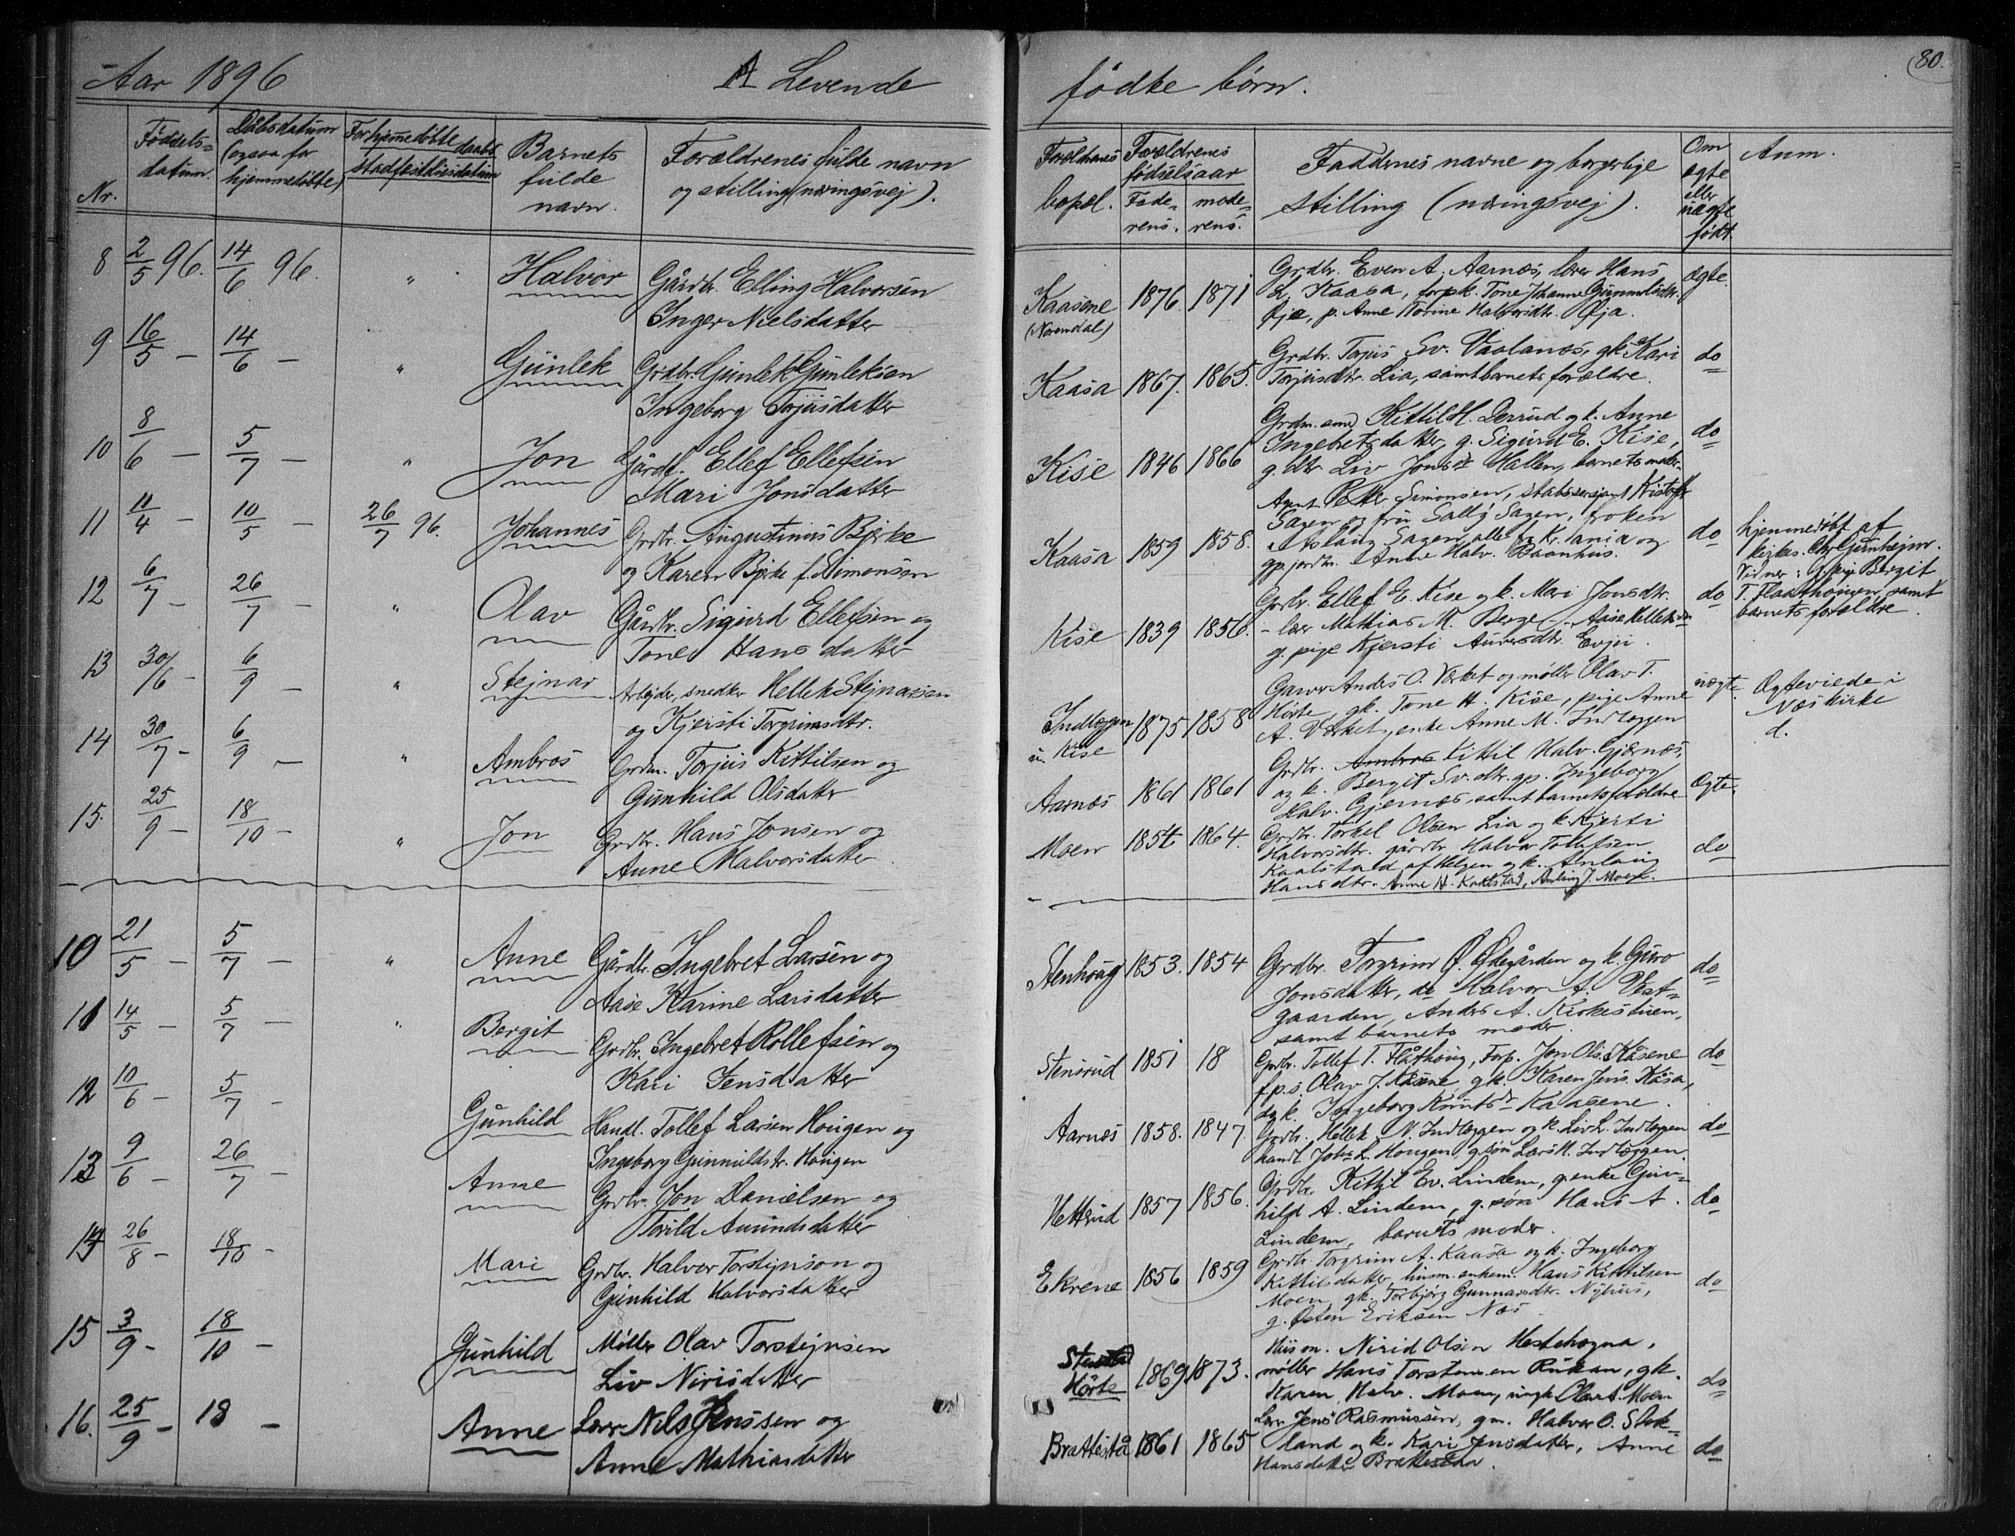 Aar 1896
A Levende
fødte børn.
80.
Nr.
Fødsels=
datum.
Dåbsdatum
(ogsaa for
hjemmedøbte)
For hjemmedøbte daabs
stadfæstelsesdatum
Barnets
fulde
navn.
Forældrenes fulde navn
og stilling (næringsvej).
Forældrenes
bopæl.
Forældrenes
fødselsaar
Fade-
rens.
mode-
rens.
Faddernes navne og borgerlige
stilling (næringsvej).
Om
ægte
eller
uægte
født
Anm.
8 2/5 96. 14/6 96. " Halvor Gårdbr. Elling Halvorsen
Inger Nielsdatter
Kaasene 1876. 1871
(Norendal)
Grdbr. Even A. Aarnæs, lærer Hans
Kaasa, Tone Johanne Gunnulfsdtr.
Øja, p. Anne Torine Halvorsdtr. Øja.
ægte.
9 16/5 – 14/6 – " Gunlek Grdbr. Gunlek Gunleksen
Ingeborg Torjusdatter
Kaasa 1867. 1865.
Grdbr. Torjus Sv. Vaalanæs, gk. Kari
Torjusdtr. Lia, samt barnets forældre.
do
10 8/6 – 5/7 – " Jon Gårdb. Ellef Ellefsen
Mari Jonsdatter
Kise 1846 1866
Kittil H. Derrud og k. Anne
Ingebetsdatter, g. Sigurd E. Kise,
g. dtr Liv Jonsdtr Hallen, barnets moder.
do
11 11/4 – 10/5 – 26/7 96. Johannes Grdbr. Augustinus Bjerke
og Karen Bjerke f. Simonsen
Kaasa 1859 1858.
Agent Peter Simonsen, statssersjant Kristoffer
Sagen og fru Sally Sagen, frøken
Aslaug Sagen, alle af Kr.iania og
gp. jordm. Anne Halv. Baanhus.
do
hjemmedøbt af
Chr. Gunhejm.
Vidner: g. pige Bergit
T. Flaathougen samt
barnets forældre.
12 6/7 – 26/7 – " Olav Gårdbr. Sigurd Ellefsen og
Tone Hansdatter
Kise 1839 1856.
Grdbr. Ellef E. Kise og k. Mari Jonsdtr.
– lærer Mathias M. Berge – Aase Helleksdtr
g. pige Kjersti Anversdtr. Evju.
do
13 30/6 – 6/9 – " Stejnar Arbejder, snedker Hellek Stejnarsen
og Kjersti Torgrimsdtr.
Indlæggen 1875 1858
u. Kise
Garver Anders O. Værket og møller Olav T.
Hörte, gk. Tone H. Kise, pige Anne
A. Værket, enke Anne M. Indlæggen
uægte
Ægteviede i
Næs kirke
d.
14 30/7 – 6/9 – " Ambros Grdm. Torjus Kittilsen og
Gunhild Olsdatter
Aarnæs 1861 1861
Grdbr. Ambros Kittil Halv. Gjernæs,
og k. Bergit Sv.dtr. gp. Ingeborg
Halv. Gjernæs, samt barnets forældre
Ægte.
15. 25/9 – 18/10 – " Jon Grdbr. Hans Jonsen og
Anne Halvorsdatter
Moen 1854 1864.
Grdbr. Torkel Olsen Lia og k. Kjersti
Halvorsdtr. gårdbr Halvor Tollefsen
Kaalstad af Helgen og k. Anlaug
Hansdtr. Anne H. Kaalstad, Anlaug J. Moen.
do
10 21/5 – 5/7 – " Anne Gårdbr. Ingebret Larsen og
Aase Karine Larsdatter
Stenhoug 1853. 1854
Grdbr. Torgrim Ø. Ødegården og k. Guro
Jonsdatter, do Halvor A. Vest-
gaarden, Anders A. Kirkestuen,
samt barnets moder.
do
11 14/5 – 5/7 – " Bergit Grdbr. Ingebret Rollefsen og
Kari Jensdatter
Stensrud 1851 18
Grdbr. Tollef T. Flåthoug, Forp. Jon Ols. Kåsene
f.p.s. Olav J. Kåsene, gk. Karen Jens. Kåsa,
do k. Ingeborg Knutsdr Kaasene.
do
12 10/6 – 5/7 – Gunhild Handl. Tollef Larsen Hougen og
Ingeborg Gunnulsdtr. Hougen
Aarnæs 1858. 1847.
Grdbr. Hellek N. Indlæggen og k. Liv L. Indlæggen
handl. Johs L. Hougen, g. søn Lars H. Indlæggen.
do
13 9/6 – 26/7 – Anne Grdbr. Jon Danielsen og
Torild Amundsdatter
Hetterud 1857 1856.
Grdbr. Kittil Ev. Lindem, g. enke Gun-
hild A. Lindem, g. søn Hans A.
Lindem, barnets moder.
do
14 26/8 – 18/10 – Mari Grdbr. Halvor Torstejnson og
Gunhild Halvorsdatter
Ekrene 1856 1859
Grdbr. Torgrim A. Kaasa og k. Ingeborg
Kittilsdatter, husm. enkem. Hans Kittilsen
Moen, gk. Torbjørg Gunnarsdtr. Nyhus,
g. Østen Eriksen Næs
do
15 3/9 – 18/10 – Gunhild Møller Olav Torstejnsen
Liv Nirisdatter
Hörte 1869 1873.
Husm. Nirid Olsen Hestehagna,
møller Hans Torstensen Rukan, gk.
Karen Halv. Moen, ungk. Olav T. Moen
do
16. 25/9 – 18 – Anne Lærer Nils Jenssen og
Anne Mathiasdatter
Bratterstå 1861 1865
Lærer Jens Rasmussen, gm. Halvor O. Slok-
land og k. Kari Jensdatter, Anne
Hansdatter Bratterstaa.
do